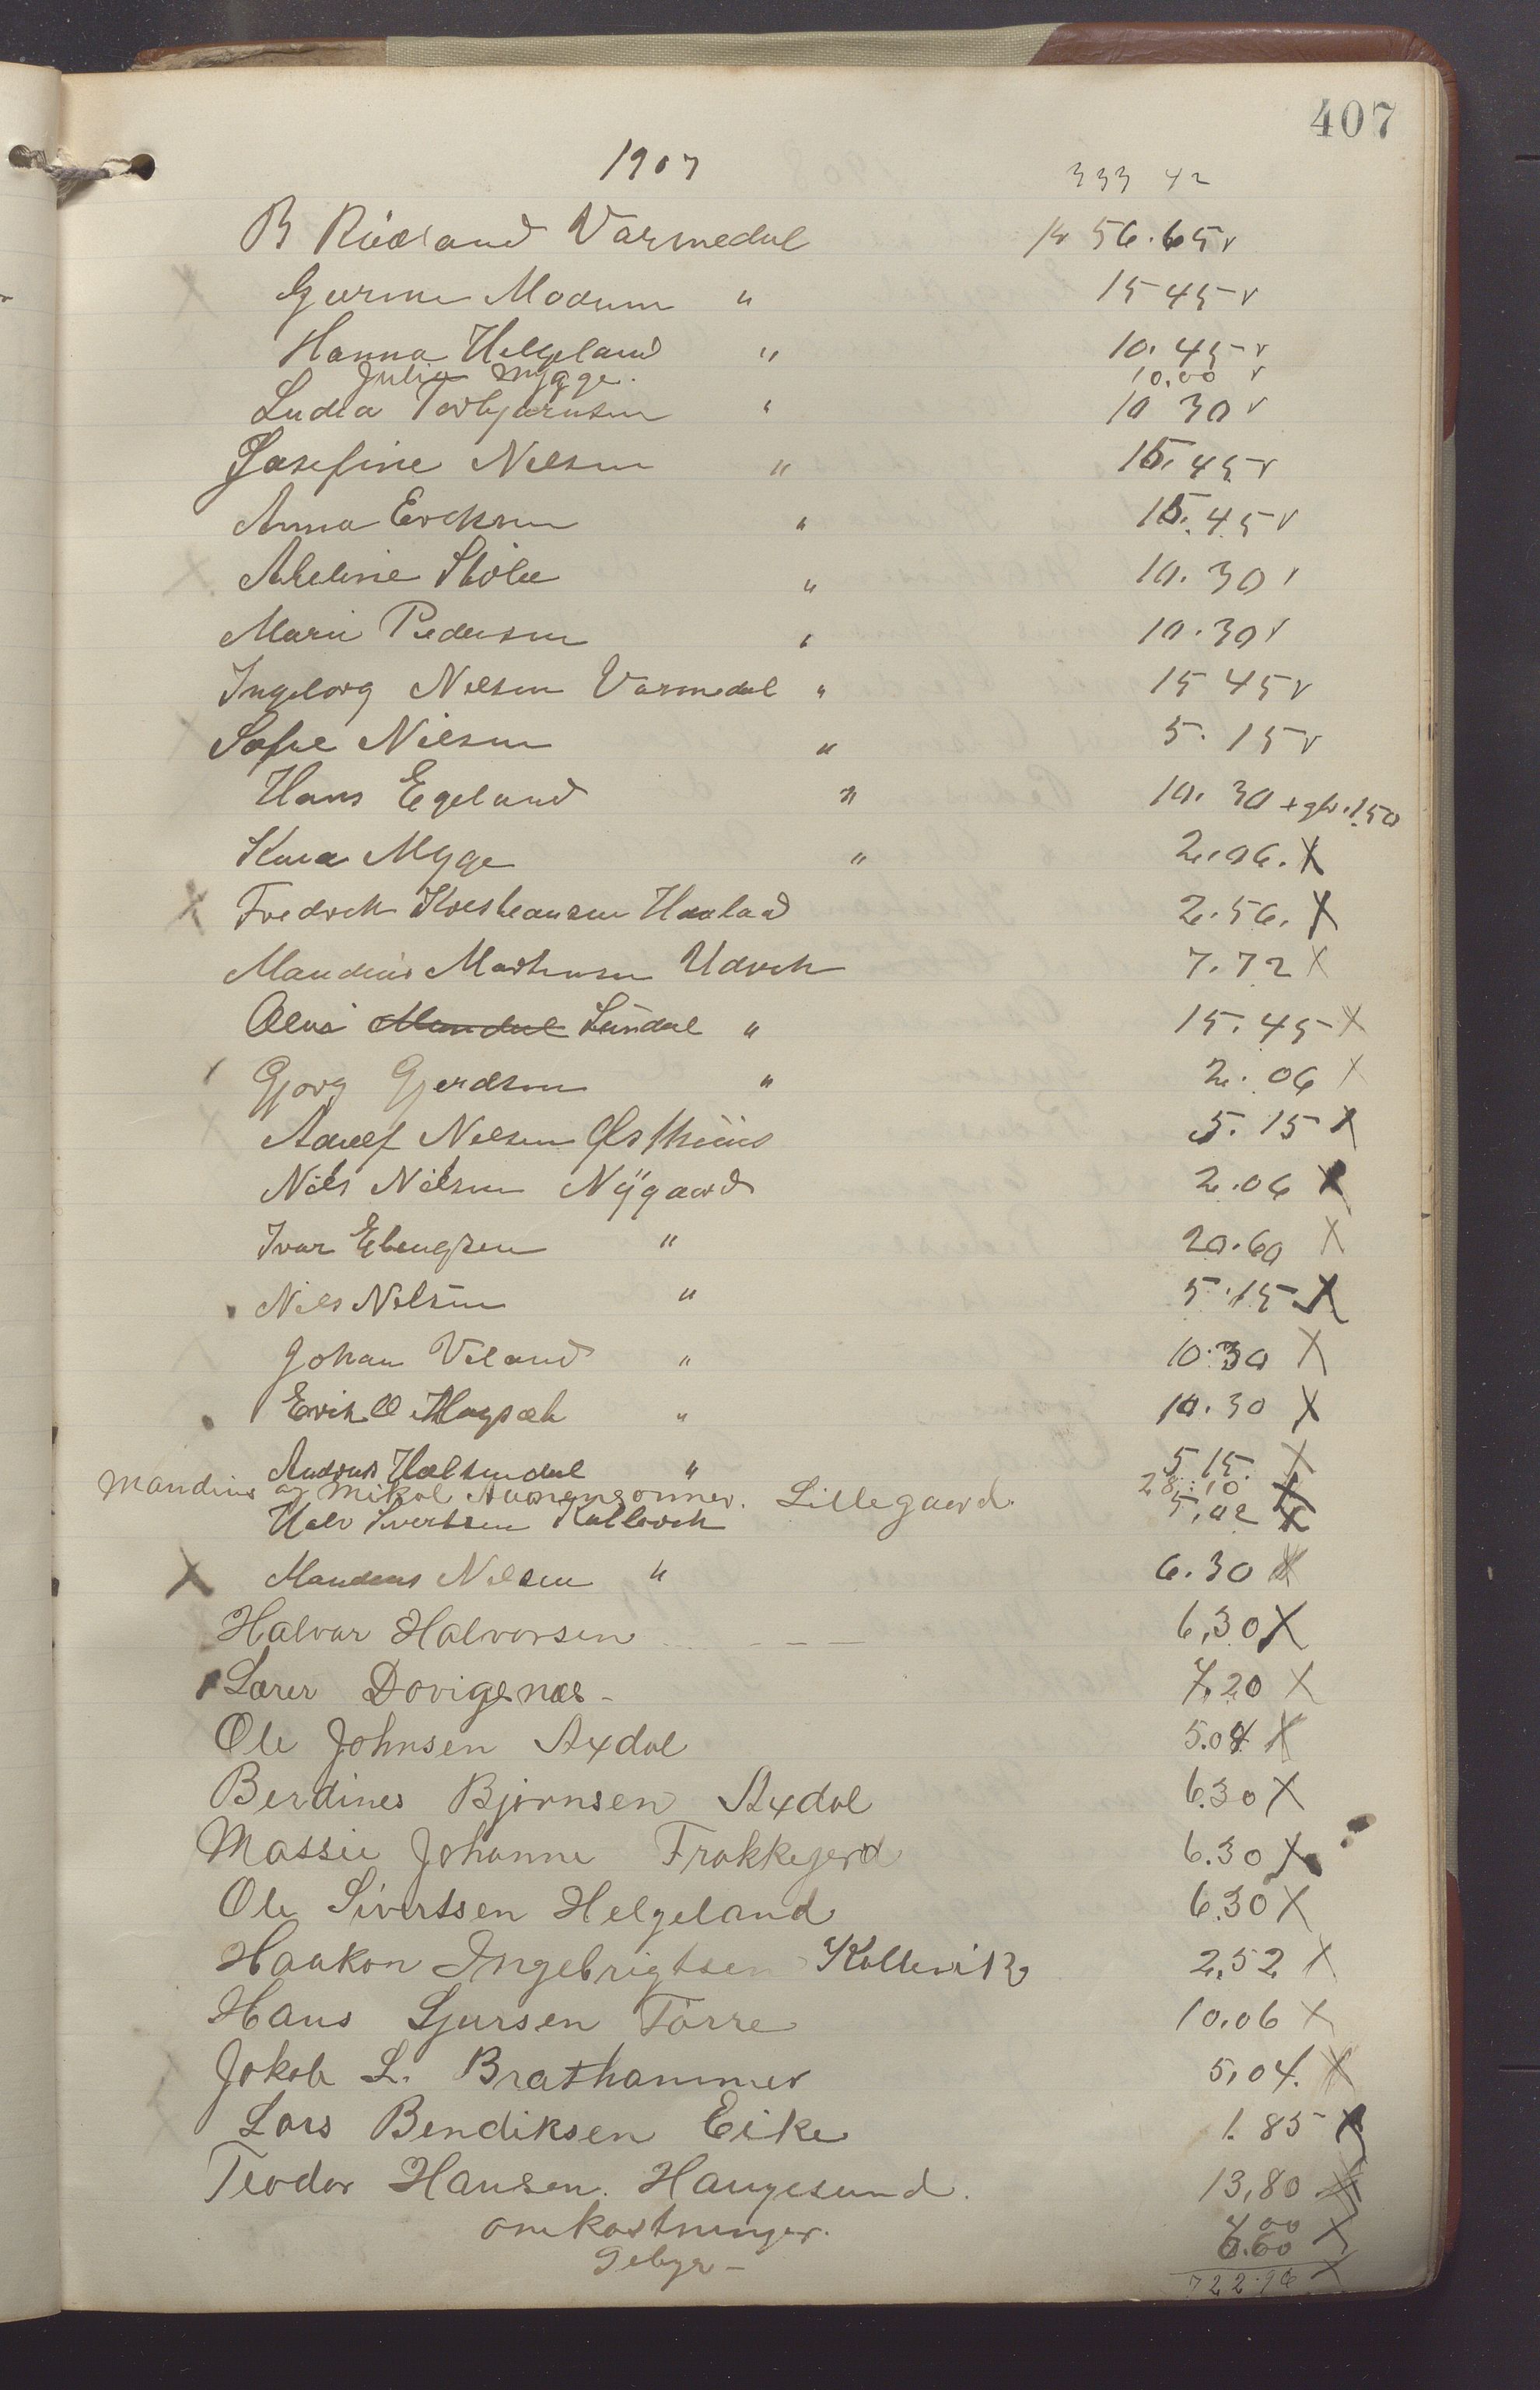 407
1907
333 42
B Rueland Varmedal kr 56.65 v
Gurine Modum " 15 45 v
Hanna Helgeland " 10.45 v
Julia Mygge. 10,00 v
Ludia Torbjørnsen " 10 30 v
Josefine Nilsen " 15.45 v
Anna Ericksen " 15.45 v
Abeline Støle " 10.30 v
Marie Pedersen " 10.30 v
Ingeborg Nilsen Varmedal " 15 45 v
X Sofie Nilsen " 5.15 v
Hans Egeland " 10.30 + gb. 1.50
Kaia Mygge " 2.06. X
X Fredrik Kristiansen Haaland 2.56. X
Maudius Martinsen Udvik 7.72 X
Olai Mandal Lundal " 15.45 X
Gjorg Gjerdsen " 2.06 X
Adolf Nilsen Østhuus 5.15 X
Nils Nilsen Nygaard 2.06 X
Ivar Elingsen " 20.60 X
Nils Nilsen " 5.15 X
Johan Veland " 10.30 X
Erik O " 10.30 X
Andreas " 5 15. X
Mandius og Mikal Aamensønner. Lillegaard. 28.10 X
Sivertsen Kallevik 5,02 X
X Mandius Nilsen " 6.30 X
Halvar Halvorsen - - - 6,30 X
Lærer Dovigenæs - 7.20 X
Ole Johnsen Axdal 5.04 X
Berdines Bjørnsen Axdal 6.30 X
Massie Johanne Frakkegerd 6.30 X
Ole Sivertsen Helgeland 6.30 X
Haakon Ingebrigtsen Kallevik 2,52 X
Hans Sjursen Førre 10.06 X
Jakob L. Brathammer 5,04. X
Lars Bendiksen Eike 1.85 X
Teodor Hansen. Haugesund. 13,80 X
omkostninger. 4 00 X
Gebyr - 6.60
722.96 X